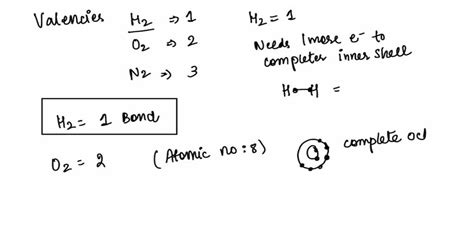 Valencies H2 ⇒ 1
O2 ⇒ 2
N2 ⇒ 3
H2 = 1
Needs 1 more e- to
completes inner shell
H H =
H2 = 1 Bond
O2 = 2 (Atomic no : 8) complete oct